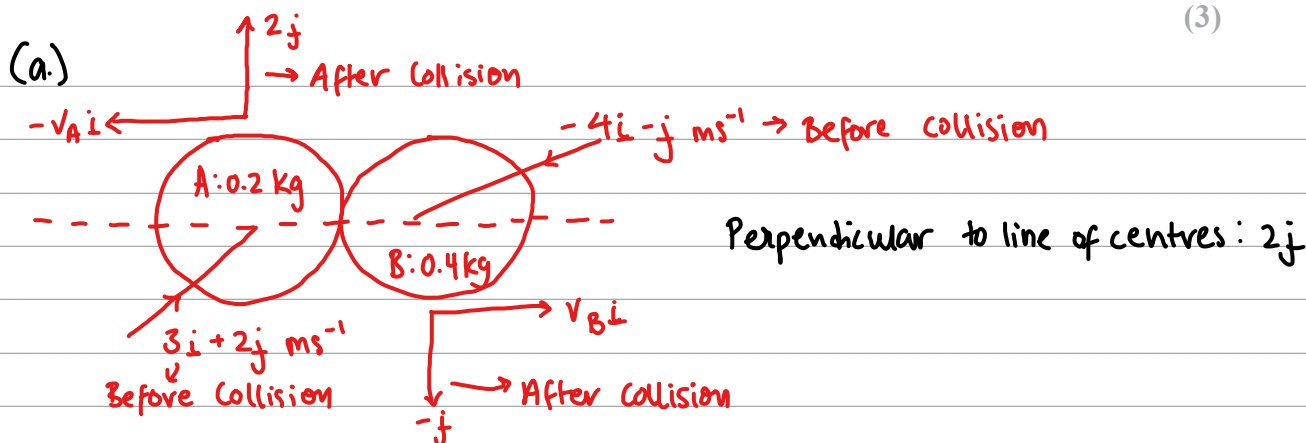 (3)
2j
(a.)
→ After Collision
-vₐ i
-4i - j ms⁻¹ → Before collision
A: 0.2 kg
Perpendicular to line of centres: 2j
B: 0.4 kg
v_B i
3i + 2j ms⁻¹
Before Collision
→ After Collision
-j